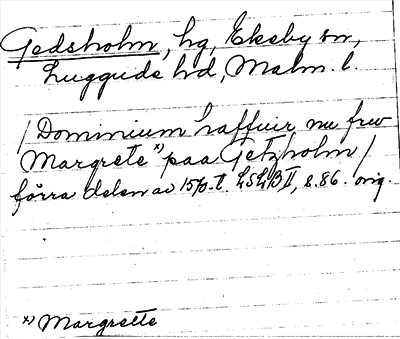 Gedsholm, hg, Ekeby sn,
Luggude hd, Malm. l.
/ Dominium haffuer nu frw
Margrete *) paa Getzholm /
förra delen av 1570-t. LSLB II, s. 86. orig.
*) Margrette